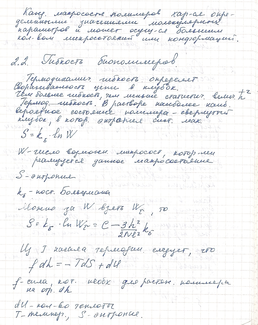 Кажд. макросост. полимеров хар-ся опре-
деленными значениями молекулярных
параметров и может осущ-ся большим
кол-вом микросостояний или конформаций.
2.2. Гибкость биополимеров
Термодинамич. гибкость определяет
сворачиваемость цепи в клубок.
Чем больше гибкость, тем меньше статистич. велич. h²
Термод. гибкость. В растворе наиболее
вероятное состояние полимера - свернутый
клубок, в котор. энтропия сист. мак
S = k_б · ln W
W - число возможн. микросост., котор-ми
реализуется данное макросостояние
S - энтропия
k_б - пост. Больцмана
Можно за W взять W_г, то
S = k_б · ln W_г = C - 3h²/2Nl² k_б
Из I начала термодин. следует, что
f dh = - TdS + dU
f - сила, кот. необх. для растяж. полимера
на отр. dh
dU - кол-во теплоты
T - темпер., S - энтропия.